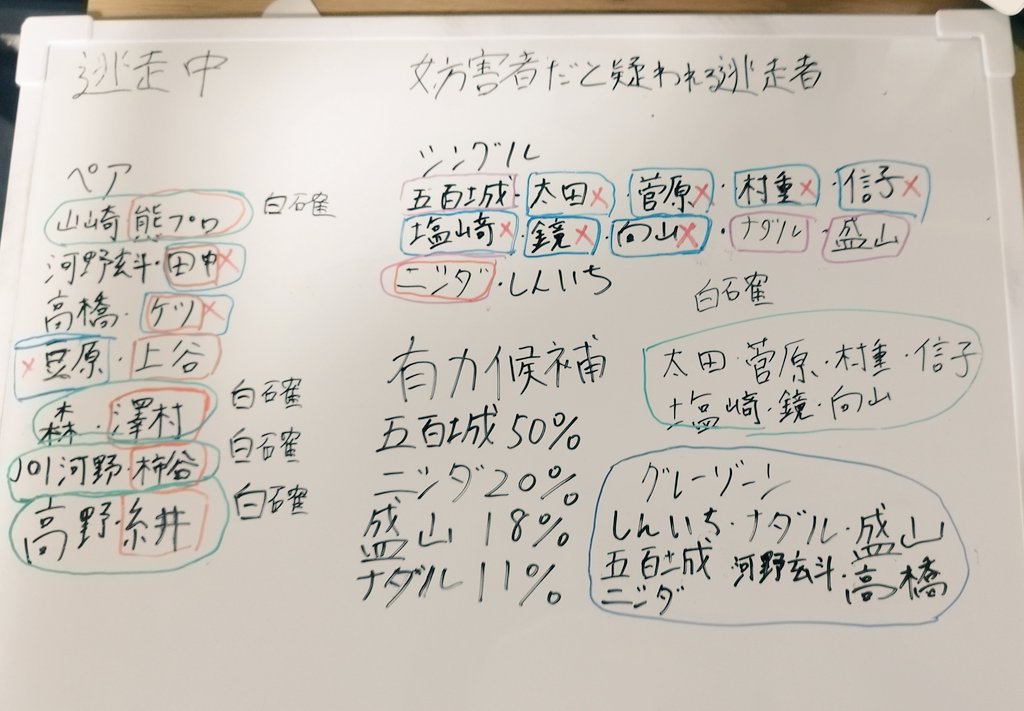 逃走中
妨害者だと疑われる逃走者
ペア
山崎 熊プロ 白確
河野玄斗・田中×
高橋・ケツ×
×豆原・上谷
森・澤村 白確
JO1河野・柿谷 白確
高野・糸井 白確
シングル
五百城・太田×・菅原×・村重×・信子×
塩崎×・鏡×・向山×・ナダル・盛山
ニシダ・しんいち
有力候補
五百城50%
ニシダ20%
盛山 18%
ナダル11%
白確
太田・菅原・村重・信子
塩崎・鏡・向山
グレーゾーン
しんいち・ナダル・盛山
五百城 河野玄斗・高橋
ニシダ